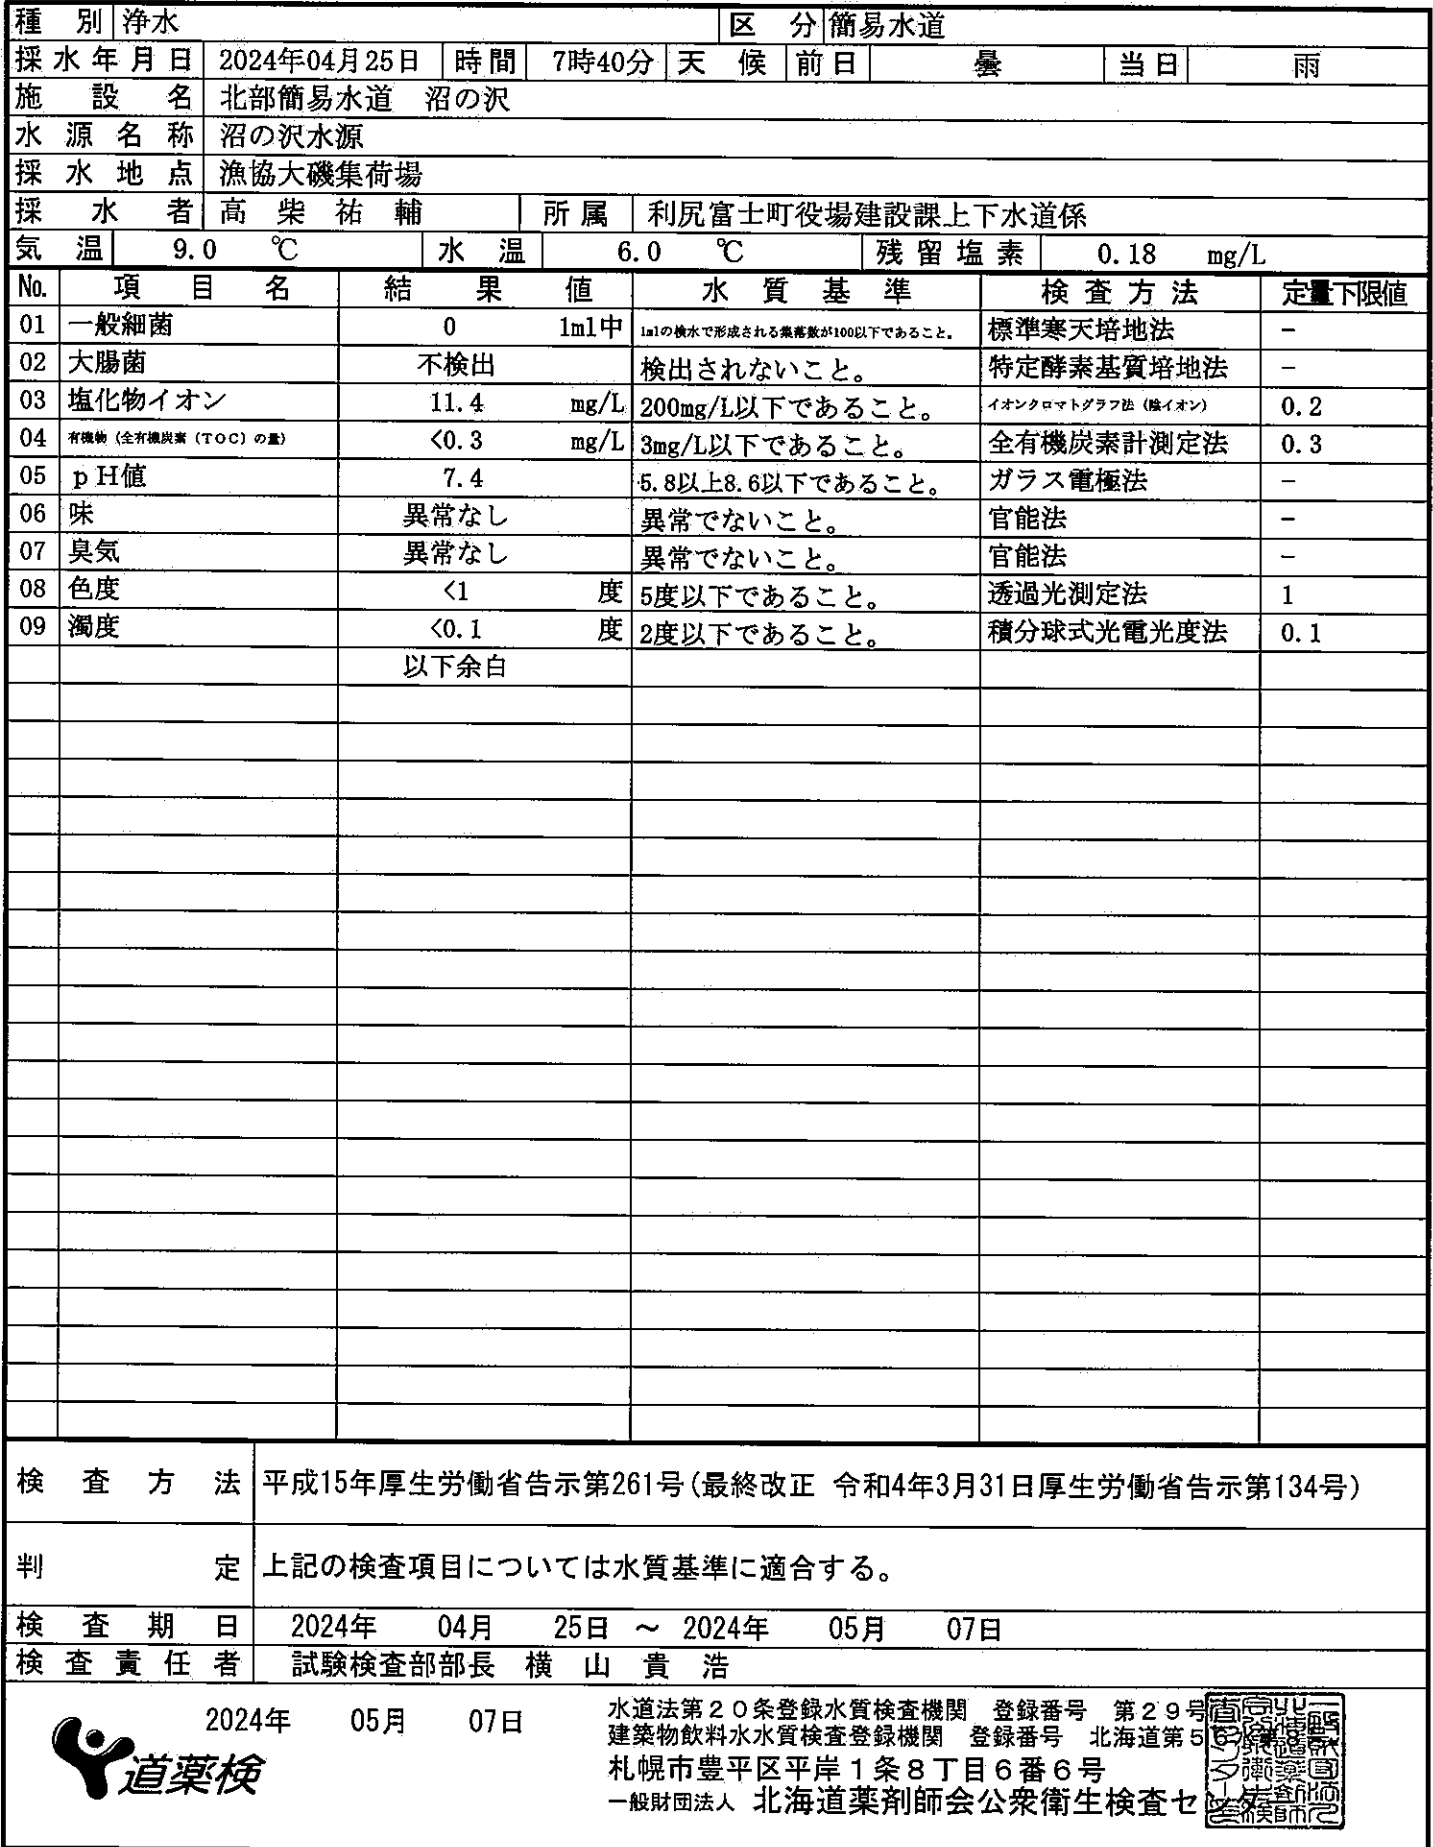 種別 浄水 区分 簡易水道
採水年月日 2024年04月25日 時間 7時40分 天候 前日 曇 当日 雨
施設名 北部簡易水道 沼の沢
水源名称 沼の沢水源
採水地点 漁協大磯集荷場
採水者 高柴祐輔 所属 利尻富士町役場建設課上下水道係
気温 9.0 ℃ 水温 6.0 ℃ 残留塩素 0.18 mg/L
No. 項目名 結果値 水質基準 検査方法 定量下限値
01 一般細菌 0 1ml中 1mlの検水で形成される集落数が100以下であること。 標準寒天培地法 −
02 大腸菌 不検出 検出されないこと。 特定酵素基質培地法 −
03 塩化物イオン 11.4 mg/L 200mg/L以下であること。 イオンクロマトグラフ法（陰イオン） 0.2
04 有機物（全有機炭素（TOC）の量） <0.3 mg/L 3mg/L以下であること。 全有機炭素計測定法 0.3
05 pH値 7.4 5.8以上8.6以下であること。 ガラス電極法 −
06 味 異常なし 異常でないこと。 官能法 −
07 臭気 異常なし 異常でないこと。 官能法 −
08 色度 <1 度 5度以下であること。 透過光測定法 1
09 濁度 <0.1 度 2度以下であること。 積分球式光電光度法 0.1
以下余白
検査方法 平成15年厚生労働省告示第261号(最終改正 令和4年3月31日厚生労働省告示第134号)
判定 上記の検査項目については水質基準に適合する。
検査期日 2024年 04月 25日 ～ 2024年 05月 07日
検査責任者 試験検査部部長 横山貴浩
2024年 05月 07日
道薬検
水道法第20条登録水質検査機関 登録番号 第29号
建築物飲料水水質検査登録機関 登録番号 北海道第56水第8号
札幌市豊平区平岸1条8丁目6番6号
一般財団法人 北海道薬剤師会公衆衛生検査センター